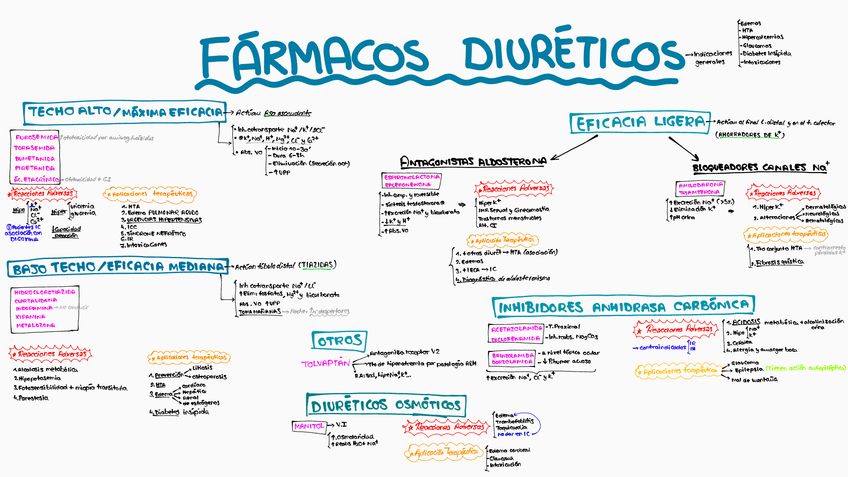 FÁRMACOS DIURÉTICOS
Indicaciones generales
- Edemas
- HTA
- Hipercalcemias
- Glaucomas
- Diabetes Insípida
- Intoxicaciones
TECHO ALTO/MÁXIMA EFICACIA
Actúan: Asa ascendente
FUROSEMIDA
TORASEMIDA
BUMETANIDA
PIRETANIDA
ÁC. ETACRÍNICO
Ototoxicidad por aminoglucósidos
Ototoxicidad + GI
Inh cotransporte Na⁺/K⁺/2Cl⁻
Abs. VO
- Inicio 10-30'
- Dura 6-8h
- Eliminación
- ↑UPP
* Reacciones Adversas
Hipo
K⁺
Na⁺
Cl⁻
Hiper
uricemia
glucemia
Pacientes IC
asociación con
DIGOXINA
Capacidad
audición
* Aplicaciones terapéuticas
1. HTA
2. Edema PULMONAR AGUDO
3. URGENCIAS HIPERTENSIVAS
4. ICC
5. SÍNDROME NEFRÓTICO
6. IR
7. Intoxicaciones
BAJO TECHO/EFICACIA MEDIANA
Actúan túbulo distal (TIAZIDAS)
HIDROCLOROTIAZIDA
CLORTALIDONA
INDAPAMIDA
XIPAMIDA
METALAZONA
Inh cotransporte Na⁺/Cl⁻
↑Elim fosfatos, Mg²⁺ y bicarbonato
Abs. VO ↑UPP
TOMA MAÑANAS
* Reacciones Adversas
1. Alcalosis metabólica
2. Hipopotasemia
3. Fotosensibilidad + miopía transitoria
4. Parestesia
* Aplicaciones terapéuticas
1. Prevención
Litiasis
osteoporosis
2. HTA
3. Edema
cardíaco
Hepático
Renal
de estrógenos
4. Diabetes insípida
EFICACIA LIGERA
Actúan al final t. distal y en el t. colector
(AHORRADORES DE K⁺)
ANTAGONISTAS ALDOSTERONA
ESPIRONOLACTONA
EPLERENONA
- Inh. comp. y reversible
- Síntesis testosterona
- ↑Excreción Na⁺ y bicarbonato
- ↓K⁺ y H⁺
- ↑Abs. VO
* Reacciones Adversas
Hiper K⁺
Inh sexual y Ginecomastia
Trastornos menstruales
Alt. GI
* Aplicación Terapéutica
1. + otros diurét → HTA (asociación)
2. Edemas
3. + IECA → IC
4. Diagnóstico de aldosteronismo
BLOQUEADORES CANALES Na⁺
AMILORIDA
TRIAMTERENA
↑ Excreción Na⁺ (>5%)
↓ Eliminación K⁺
↑ pH orina
* Reacciones Adversas
1. Hiper K⁺
2. Alteraciones
Dermatológicas
Neurológicas
Hematológicas
* Aplicaciones terapéuticas
1. Tto conjunto HTA → contrarresta pérdidas K⁺
2. Fibrosis quística
INHIBIDORES ANHIDRASA CARBÓNICA
ACETAZOLAMIDA
DICLOFENAMIDA
- T. Proximal
- Inh. reabs. NaHCO₃
BRINZOLAMIDA
DORZOLAMIDA
- a nivel tópico ocular
- ↓ P humor acuoso
↑ Excreción Na⁺, Cl⁻ y K⁺
* Reacciones Adversas
contraindicados
IR
IH
1. ACIDOSIS metabólica + alcalinización orina
2. Hipo
Na⁺
K⁺
3. Cefalea
4. Alergia y amargor boca
* Aplicaciones terapéuticas
- Glaucoma
- Epilepsia (Tienen acción antiepiléptica)
- Mal de montaña
OTROS
TOLVAPTÁN
Antagonista receptor V2
Tto de hiponatremia por patología ADH
DIURÉTICOS OSMÓTICOS
MANITOL → V.I
↑ Osmolaridad
* Reacciones Adversas
Edema
Tromboflebitis
Taquicardia
no dar en IC
* Aplicación Terapéutica
- Edema cerebral
- Glaucoma
- Intoxicación